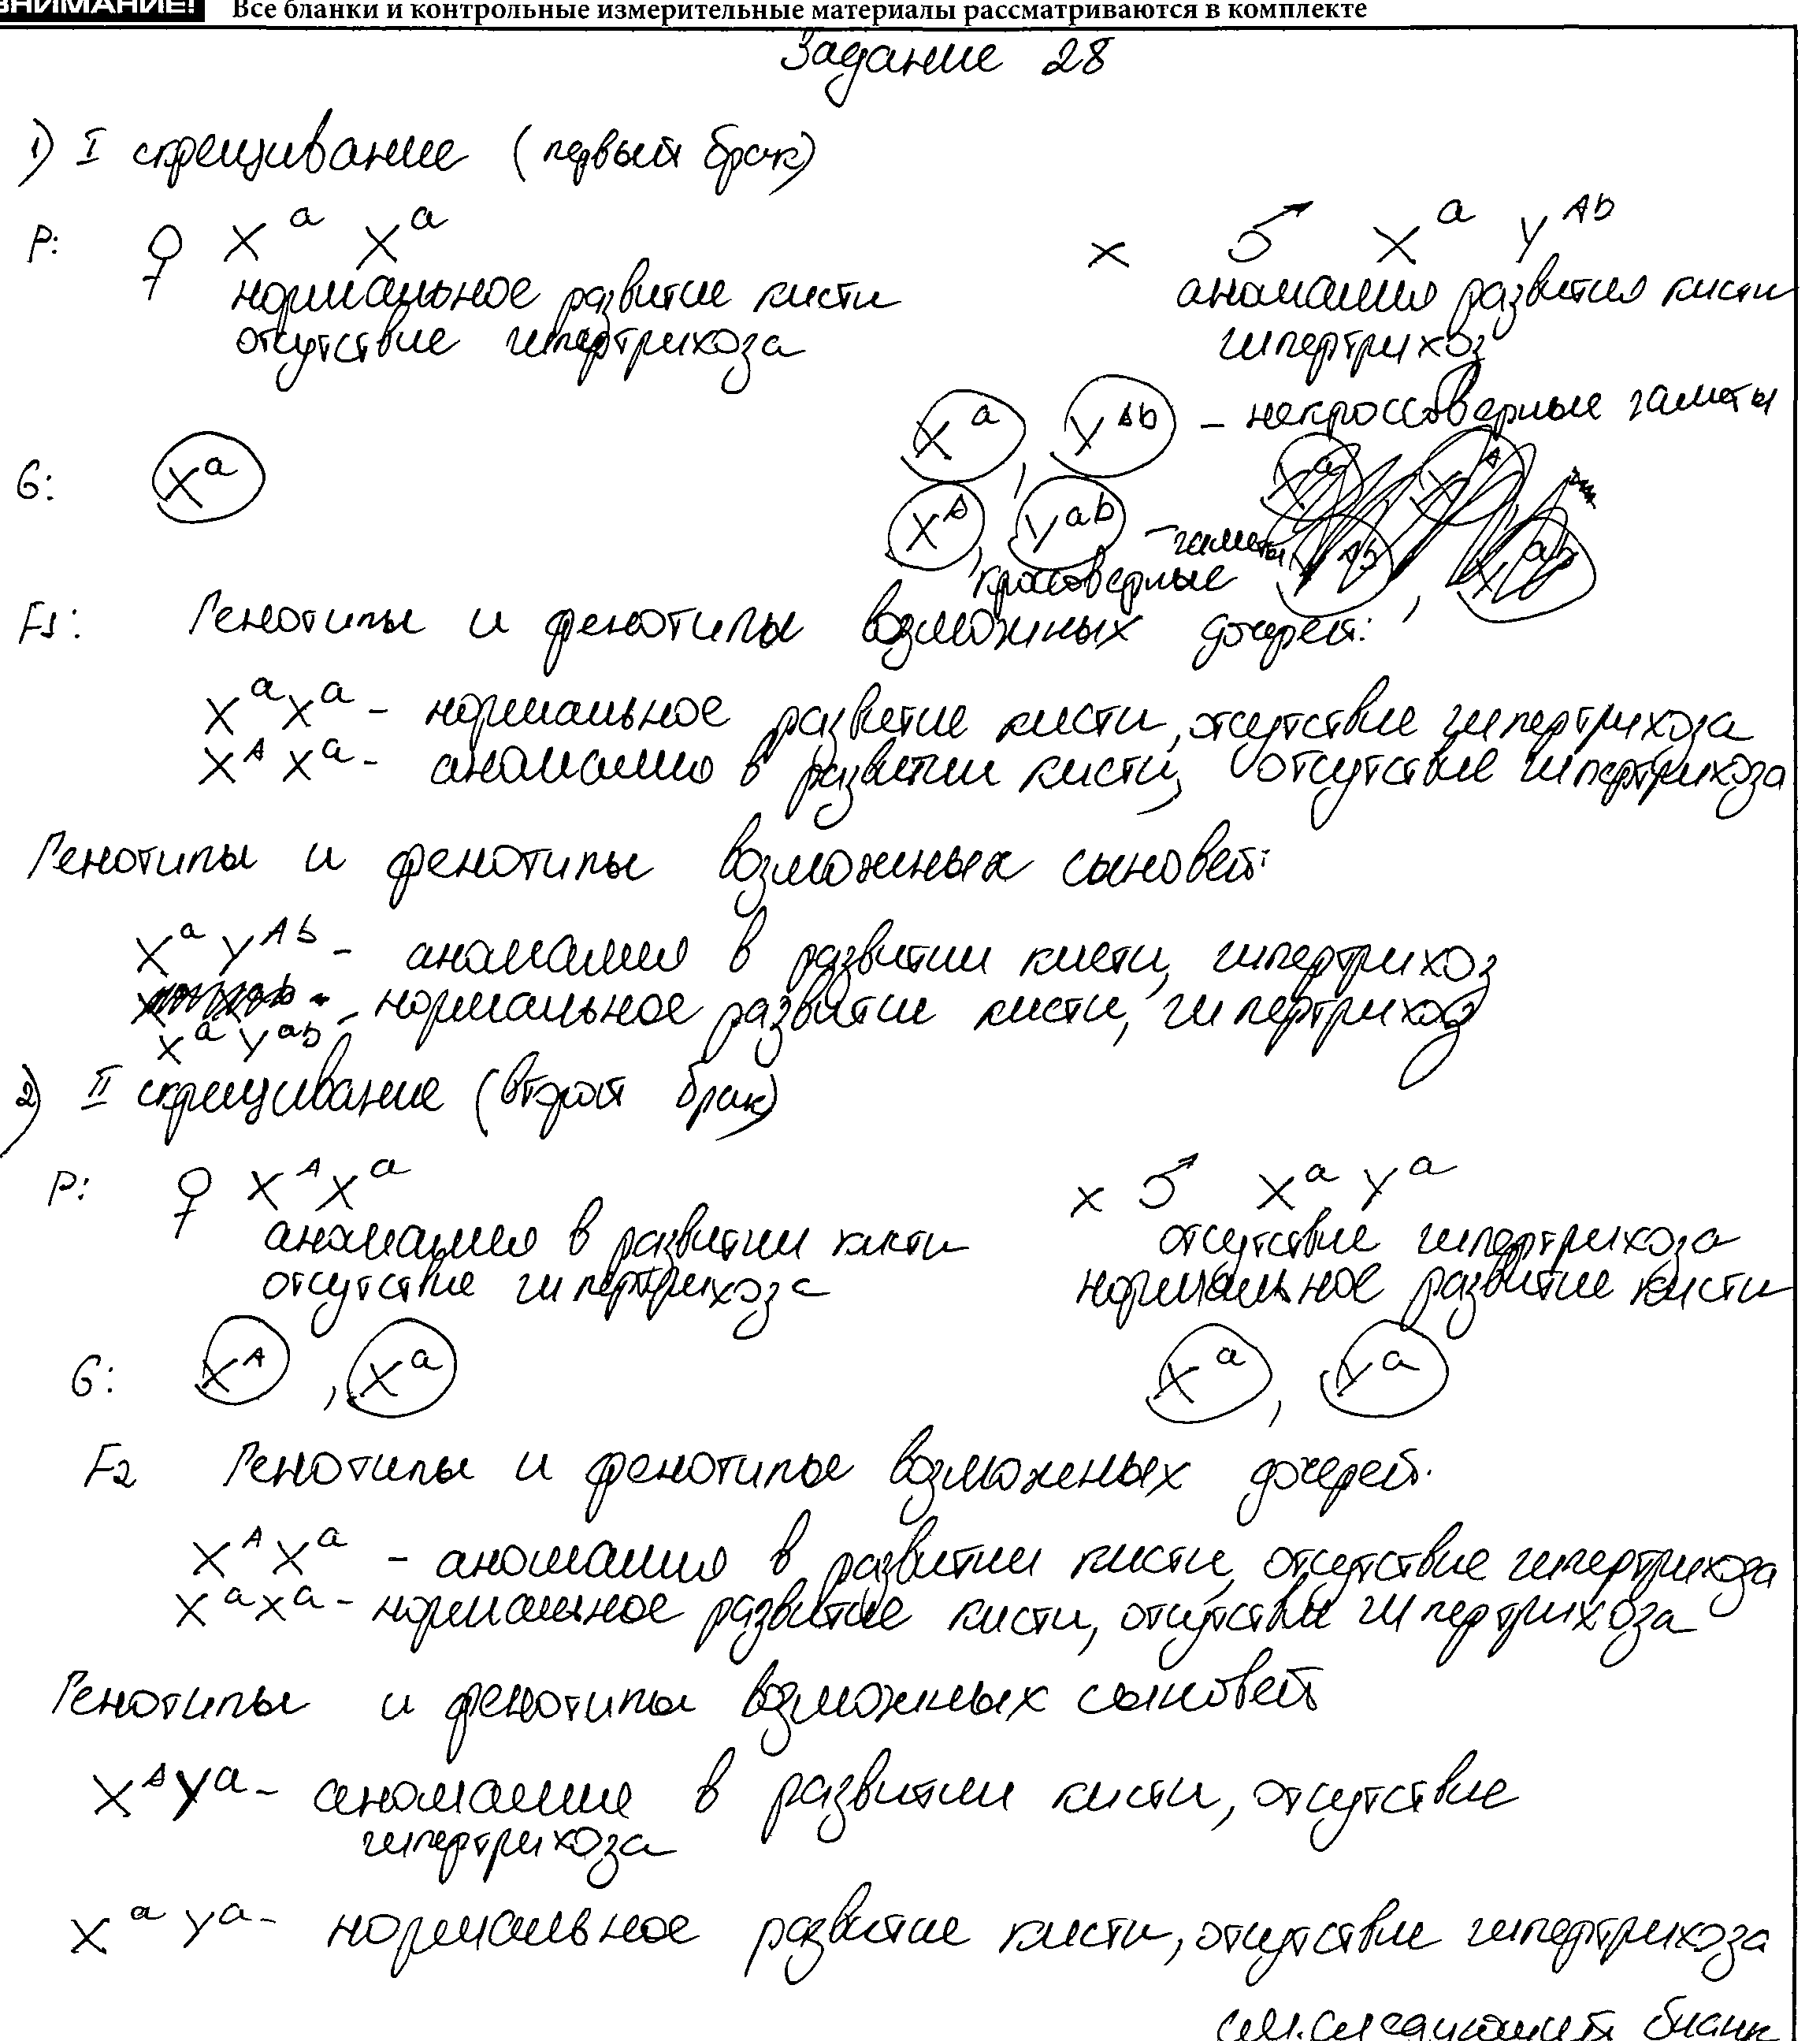 ВНИМАНИЕ! Все бланки и контрольные измерительные материалы рассматриваются в комплекте
Задание 28
1) I скрещивание (первый брак)
P: ♀ X^a X^a × ♂ X^a Y^Ab
нормальное развитие кисти аномалия развития кисти
отсутствие гипертрихоза гипертрихоз
X^a, Y^Ab - некроссоверные гаметы
G: X^a
X^A, Y^ab - гаметы
кроссоверные
F1: Генотипы и фенотипы возможных дочерей:
X^a X^a - нормальное развитие кисти, отсутствие гипертрихоза
X^A X^a - аномалия в развитии кисти, отсутствие гипертрихоза
Генотипы и фенотипы возможных сыновей:
X^a Y^Ab - аномалия в развитии кисти, гипертрихоз
X^a Y^ab - нормальное развитие кисти, гипертрихоз
2) II скрещивание (второй брак)
P: ♀ X^A X^a × ♂ X^a Y^a
аномалия в развитии кисти отсутствие гипертрихоза
отсутствие гипертрихоза нормальное развитие кисти
G: X^A, X^a X^a, Y^a
F2 Генотипы и фенотипы возможных дочерей:
X^A X^a - аномалия в развитии кисти, отсутствие гипертрихоза
X^a X^a - нормальное развитие кисти, отсутствие гипертрихоза
Генотипы и фенотипы возможных сыновей
X^A Y^a - аномалия в развитии кисти, отсутствие
гипертрихоза
X^a Y^a - нормальное развитие кисти, отсутствие гипертрихоза
см. следующий бланк